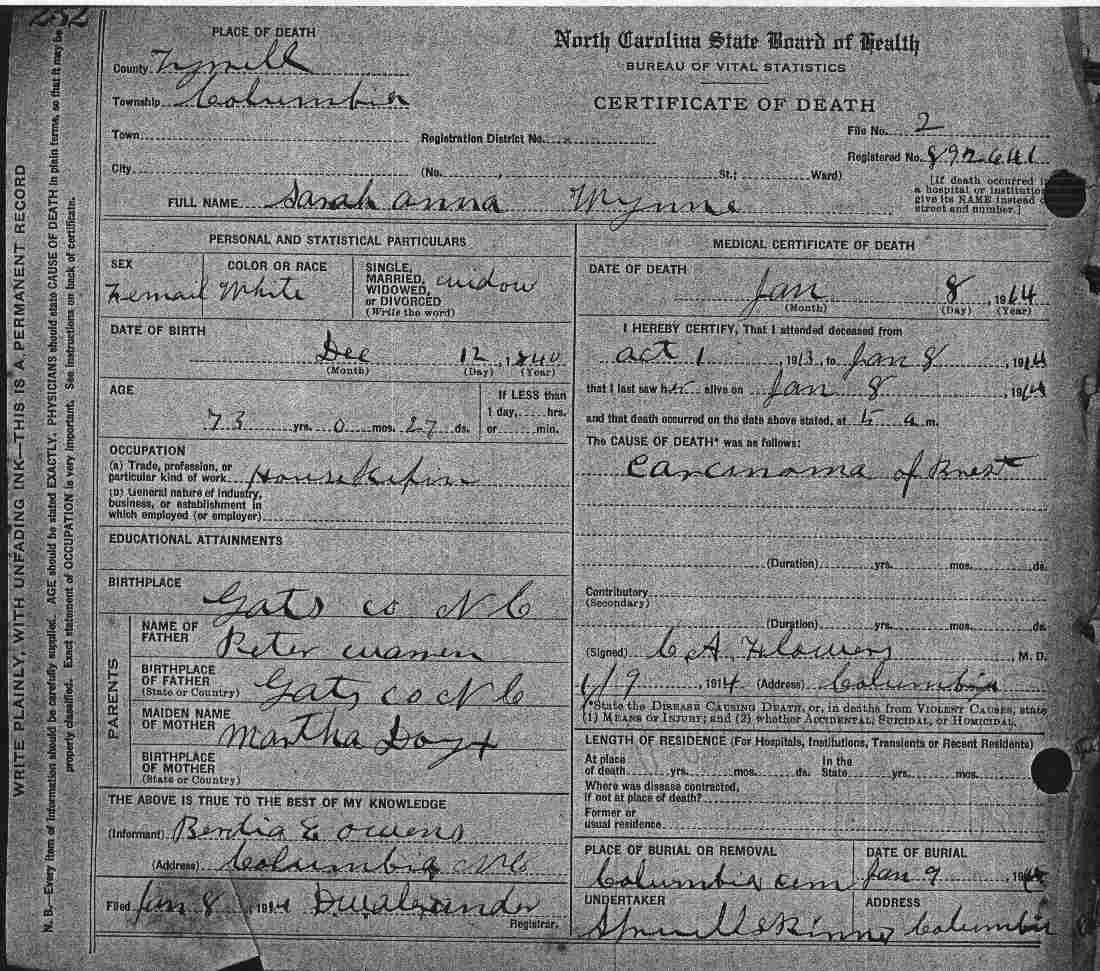 252
PLACE OF DEATH
North Carolina State Board of Health
BUREAU OF VITAL STATISTICS
CERTIFICATE OF DEATH
County Tyrrell
Township Columbia
Town
Registration District No.
File No. 2
City
(No. , St.; Ward)
Registered No.
[If death occurred in
a hospital or institution
give its NAME instead of
street and number.]
FULL NAME Sarah anna Wynne
PERSONAL AND STATISTICAL PARTICULARS
SEX
Femail
COLOR OR RACE
White
SINGLE,
MARRIED,
WIDOWED,
or DIVORCED
(Write the word)
widow
DATE OF BIRTH
Dec 12, 1840
(Month) (Day) (Year)
AGE
73 yrs. 0 mos. 27 ds.
If LESS than
1 day, hrs.
or min.
OCCUPATION
(a) Trade, profession, or
particular kind of work
(b) General nature of industry,
business, or establishment in
which employed (or employer)
EDUCATIONAL ATTAINMENTS
BIRTHPLACE
Gats co N C
PARENTS
NAME OF
FATHER
Peter warren
BIRTHPLACE
OF FATHER
(State or Country)
Gats co N C
MAIDEN NAME
OF MOTHER
Martha
BIRTHPLACE
OF MOTHER
(State or Country)
THE ABOVE IS TRUE TO THE BEST OF MY KNOWLEDGE
(Informant) E owens
(Address) Columbia N C
Filed Jan 8, 1914 Registrar.
MEDICAL CERTIFICATE OF DEATH
DATE OF DEATH
Jan 8, 1914
(Month) (Day) (Year)
I HEREBY CERTIFY, That I attended deceased from
oct 1, 1913, to Jan 8, 1914
that I last saw her alive on Jan 8, 1914
and that death occurred on the date above stated, at 5 a m.
The CAUSE OF DEATH* was as follows:
Carcinoma of Brest
(Duration) yrs. mos. ds.
Contributory
(Secondary)
(Duration) yrs. mos. ds.
(Signed) C A Flowers M. D.
1/9, 1914 (Address) Columbia
*State the DISEASE CAUSING DEATH, or, in deaths from VIOLENT CAUSES, state
(1) MEANS OF INJURY; and (2) whether ACCIDENTAL, SUICIDAL, or HOMICIDAL.
LENGTH OF RESIDENCE (For Hospitals, Institutions, Transients or Recent Residents)
At place
of death yrs. mos. ds.
In the
State yrs. mos.
Where was disease contracted,
if not at place of death?
Former or
usual residence
PLACE OF BURIAL OR REMOVAL
Columbia cem
DATE OF BURIAL
Jan 9 1914
UNDERTAKER
ADDRESS
Columbia
WRITE PLAINLY, WITH UNFADING INK—THIS IS A PERMANENT RECORD
N. B.—Every item of information should be carefully supplied. AGE should be stated EXACTLY. PHYSICIANS should state CAUSE OF DEATH in plain terms, so that it may be
properly classified. Exact statement of OCCUPATION is very important. See instructions on back of certificate.